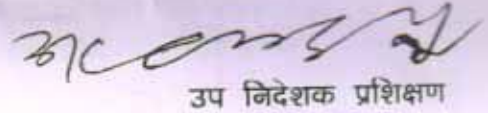 उप निदेशक प्रशिक्षण